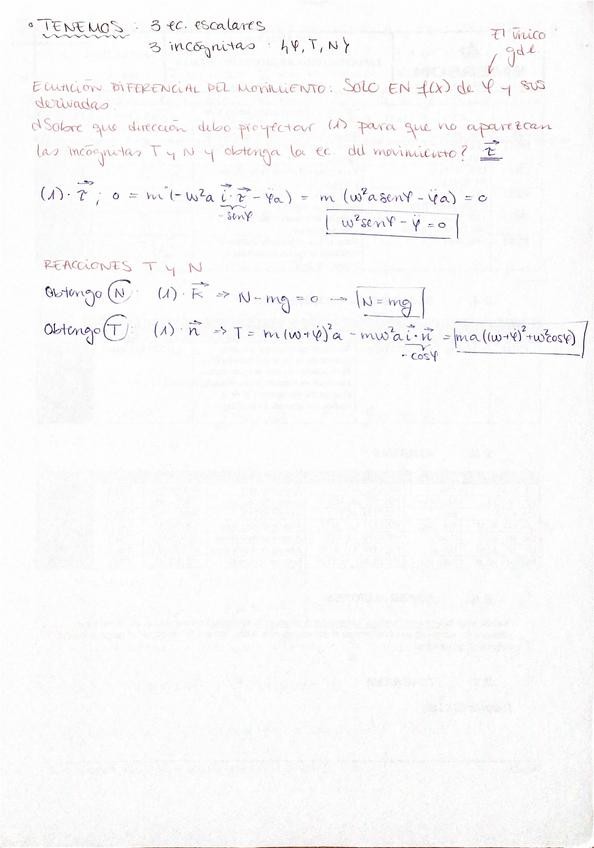 ° TENEMOS : 3 ec. escalares
3 incógnitas : {φ, T, N}
El único
gdl
ECUACIÓN DIFERENCIAL DEL MOVIMIENTO: SOLO EN f(x) de φ y sus
derivadas.
¿Sobre que dirección debo proyectar (1) para que no aparezcan
las incógnitas T y N y obtenga la ec. del movimiento? τ⃗
(1)·τ⃗ ; 0 = m (-ω²a i⃗·τ⃗ - φ̈a) = m (ω²a senφ - φ̈a) = 0
-senφ
ω²senφ - φ̈ = 0
REACCIONES T y N
Obtengo N : (1)·K⃗ ⇒ N - mg = 0 → N = mg
Obtengo T : (1)·n⃗ ⇒ T = m(ω+φ̇)²a - mω²a i⃗·n⃗ = ma((ω+φ̇)²+ω²cosφ)
-cosφ